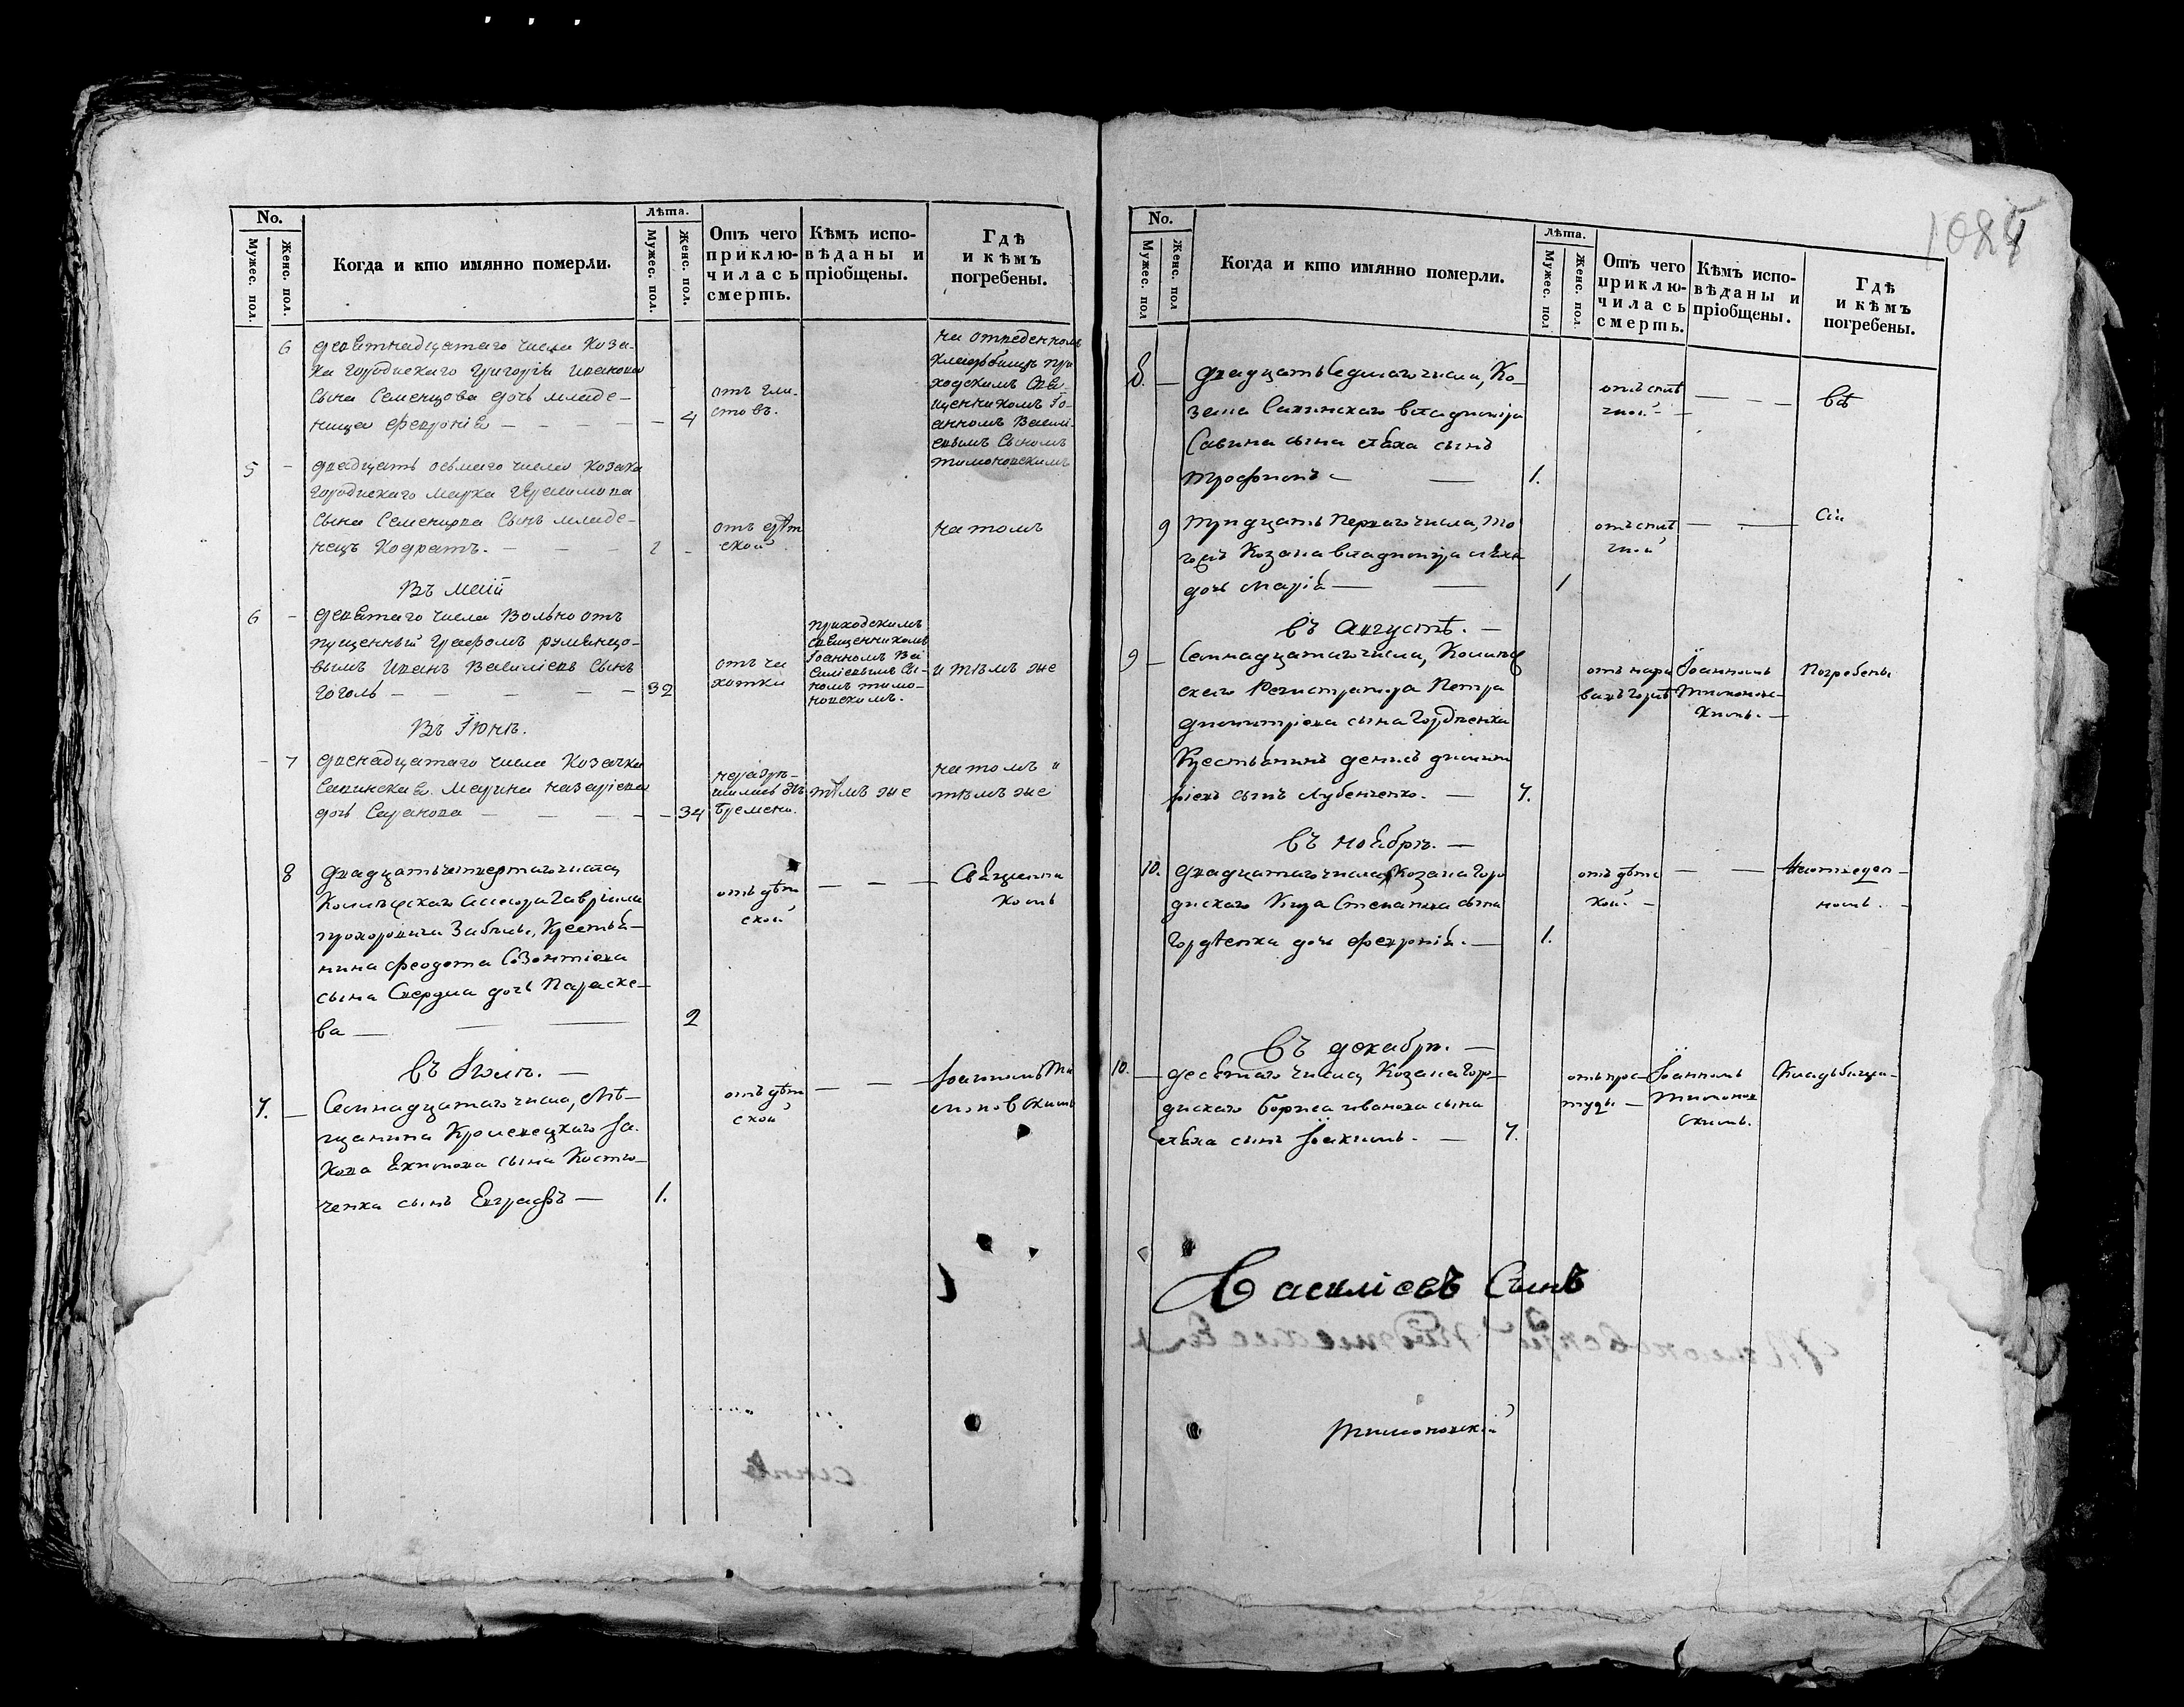 No.
Мужес. пол.
Женс. пол.
Когда и кто имянно померли.
Лѣта.
Мужес. пол.
Женс. пол.
Отъ чего
приклю-
чилась
смерть.
Кѣмъ испо-
вѣданы и
пріобщены.
Гдѣ
и кѣмъ
погребены.
6 девятнадцатаго числа Коза-
ка городнскаго Григорія Иванова
Сына Семенцова дочь младе-
ница Февронія — — — — — 4
отъ гли-
стовъ.
на отведенномъ
кладбищѣ при
ходскимъ Свя-
щенникомъ Іо-
анномъ Василі-
евымъ Сыномъ
Тимоновскимъ
5 - двадцать осьмаго числа козака
городнскаго Марка
Сына Семенцова Сынъ младе-
нецъ Кодратъ. — — —
отъ дѣт
ской
на томъ
Въ Маіи
6 - девятаго числа Вольно отъ
пущенный Графомъ румянцо-
вымъ Иванъ Василіевъ Сынъ
Гоголь — — — — — 32
отъ ча
хотки
приходскимъ
священникомъ
Іоанномъ Ва
силіевымъ Сы-
номъ тимо-
новскимъ.
и тѣмъ же
Въ Іюнѣ.
- 7 двенадцатаго числа Козачка
Савинская Марина назаріева
дочь — — — — — 34
неразрѣ-
шилась отъ
бремени.
тѣмъ же
на томъ и
тѣмъ же
8 двадцать четвертаго числа
Колѣжскаго Асесора Гавріила
прохоровича Забѣлы, Крестья-
нина Феодота Созонтіева
сына дочь Параске-
ва — — — 2
отъ дѣт
ской
— — —
Священни
комъ
Въ Іюлѣ. —
7. — Семнадцатаго числа, Мѣ-
щанина Кролевецкаго Іа-
кова Екимова сына Костю-
ченка сынъ Евграфъ — 1.
отъ дѣт
ской
— — —
Іоанномъ Ти
моновскимъ
No.
Мужес. пол
Женс. пол
Когда и кто имянно померли.
Лѣта.
Мужес. пол
Женс. пол.
Отъ чего
приклю-
чилась
смерть.
Кѣмъ испо-
вѣданы и
пріобщены.
Гдѣ
и кѣмъ
погребены.
108
8. — двадцать седмаго числа, Ко-
зака Савинскаго
Савина сына сынъ
Трофимъ — — 1.
— — —
всѣ
9 тридцать перваго числа, то
гожъ Козака
дочь Марія — — 1
— — —
сіи
Въ Августѣ. —
9 — Семнадцатаго числа, Колѣж
скаго Регистратора Петра
димитріева сына Гордѣенка
Крестьянинъ денисъ димит
ріевъ сынъ Лубенченко. — 7.
Іоанномъ
Тимоновс-
кимъ. —
Погребены
Въ ноябрѣ. —
10. двадцатаго числа Козака Горо
днскаго Кира Степанова сына
Гордѣенка дочь Февронія. — 1.
отъ дѣтс
кой. —
— —
На отведен-
номъ. —
Въ декабрѣ. —
10. — десятаго числа Козака Горо-
днскаго Бориса иванова сына
сынъ Іоакимъ. — 7.
отъ прос-
туды —
Іоанномъ
Тимонов
скимъ.
Кладбищи-
Василіевъ Сынъ
Тимоновскій